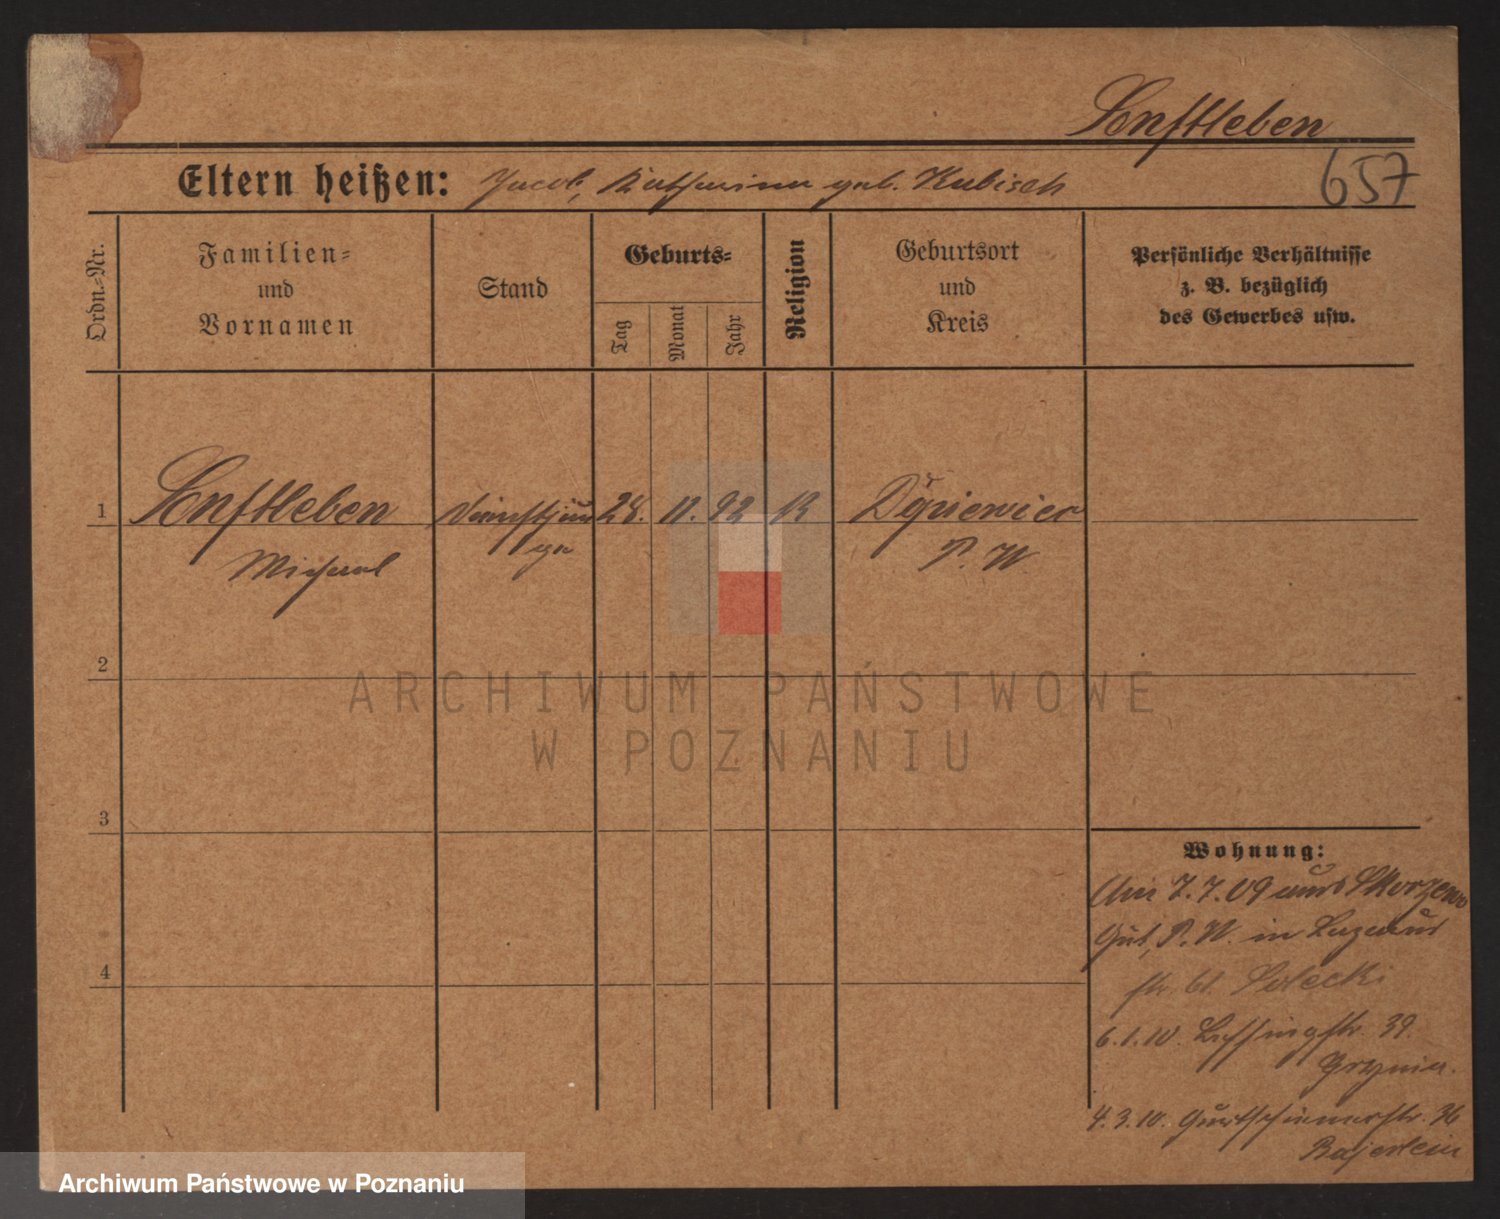 Senftleben
657
Eltern heißen: Jacob, Katharina geb. Kubisch
Ordn.-Nr.
Familien-
und
Vornamen
Stand
Geburts-
Tag
Monat
Jahr
Religion
Geburtsort
und
Kreis
Persönliche Verhältnisse
z. B. bezüglich
des Gewerbes usw.
1
Senftleben
Michael
Dienstjun
ge
28. 11. 92
K
P. W.
2
3
4
ARCHIWUM PAŃSTWOWE
W POZNANIU
Wohnung:
7.7.09
Gut, P. W. in
str. 61. Solecki
6.1.10. Lessingstr. 39.
4.3.10. Gurtschinerstr. 36
Bajerlein
Archiwum Państwowe w Poznaniu